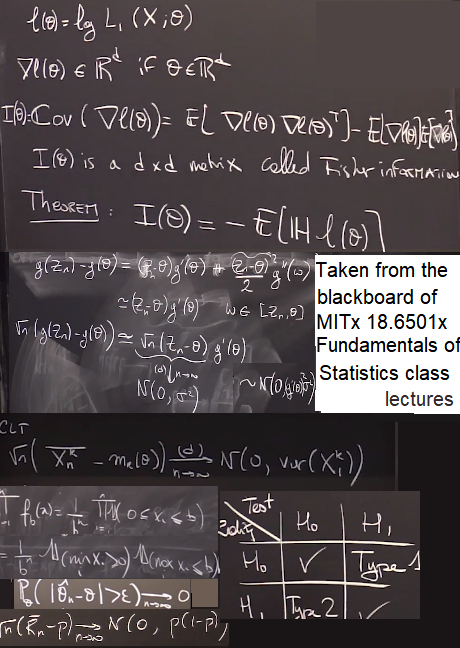 l(θ) = log L₁ (X; θ)
∇l(θ) ∈ ℝᵈ if θ ∈ ℝᵈ
I(θ) = Cov ( ∇l(θ) ) = E[ ∇l(θ) ∇l(θ)ᵀ ] − E[∇l(θ)] E[∇l(θ)ᵀ]
I(θ) is a d x d matrix called Fisher information
THEOREM : I(θ) = − E[ ℍ l(θ) ]
g(Zₙ) − g(θ) = (Zₙ−θ) g'(θ) + (Zₙ−θ)²/2 g''(ω)
≃ (Zₙ−θ) g'(θ) ω ∈ [Zₙ, θ]
√n (g(Zₙ) − g(θ)) ≃ √n (Zₙ−θ) g'(θ)
(d) ↓ n→∞
N(0, σ²) ~ N(0, g'(θ)²σ²)
Taken from the
blackboard of
MITx 18.6501x
Fundamentals of
Statistics class
lectures
CLT
√n ( X̄ₙᵏ − mₖ(θ) ) (d)→ n→∞ N(0, var(X₁ᵏ))
f_b(x) = 1/bⁿ ∏ 1( 0 ≤ xᵢ ≤ b )
= 1/bⁿ 1(min xᵢ ≥ 0) 1(max xᵢ ≤ b)
P_θ ( |θ̂ₙ − θ| > ε ) → n→∞ 0
√n (R̄ₙ − p) → n→∞ N(0, p(1−p))
Test H₀ H₁
H₀ ✓ Type 1
H₁ Type 2 ✓